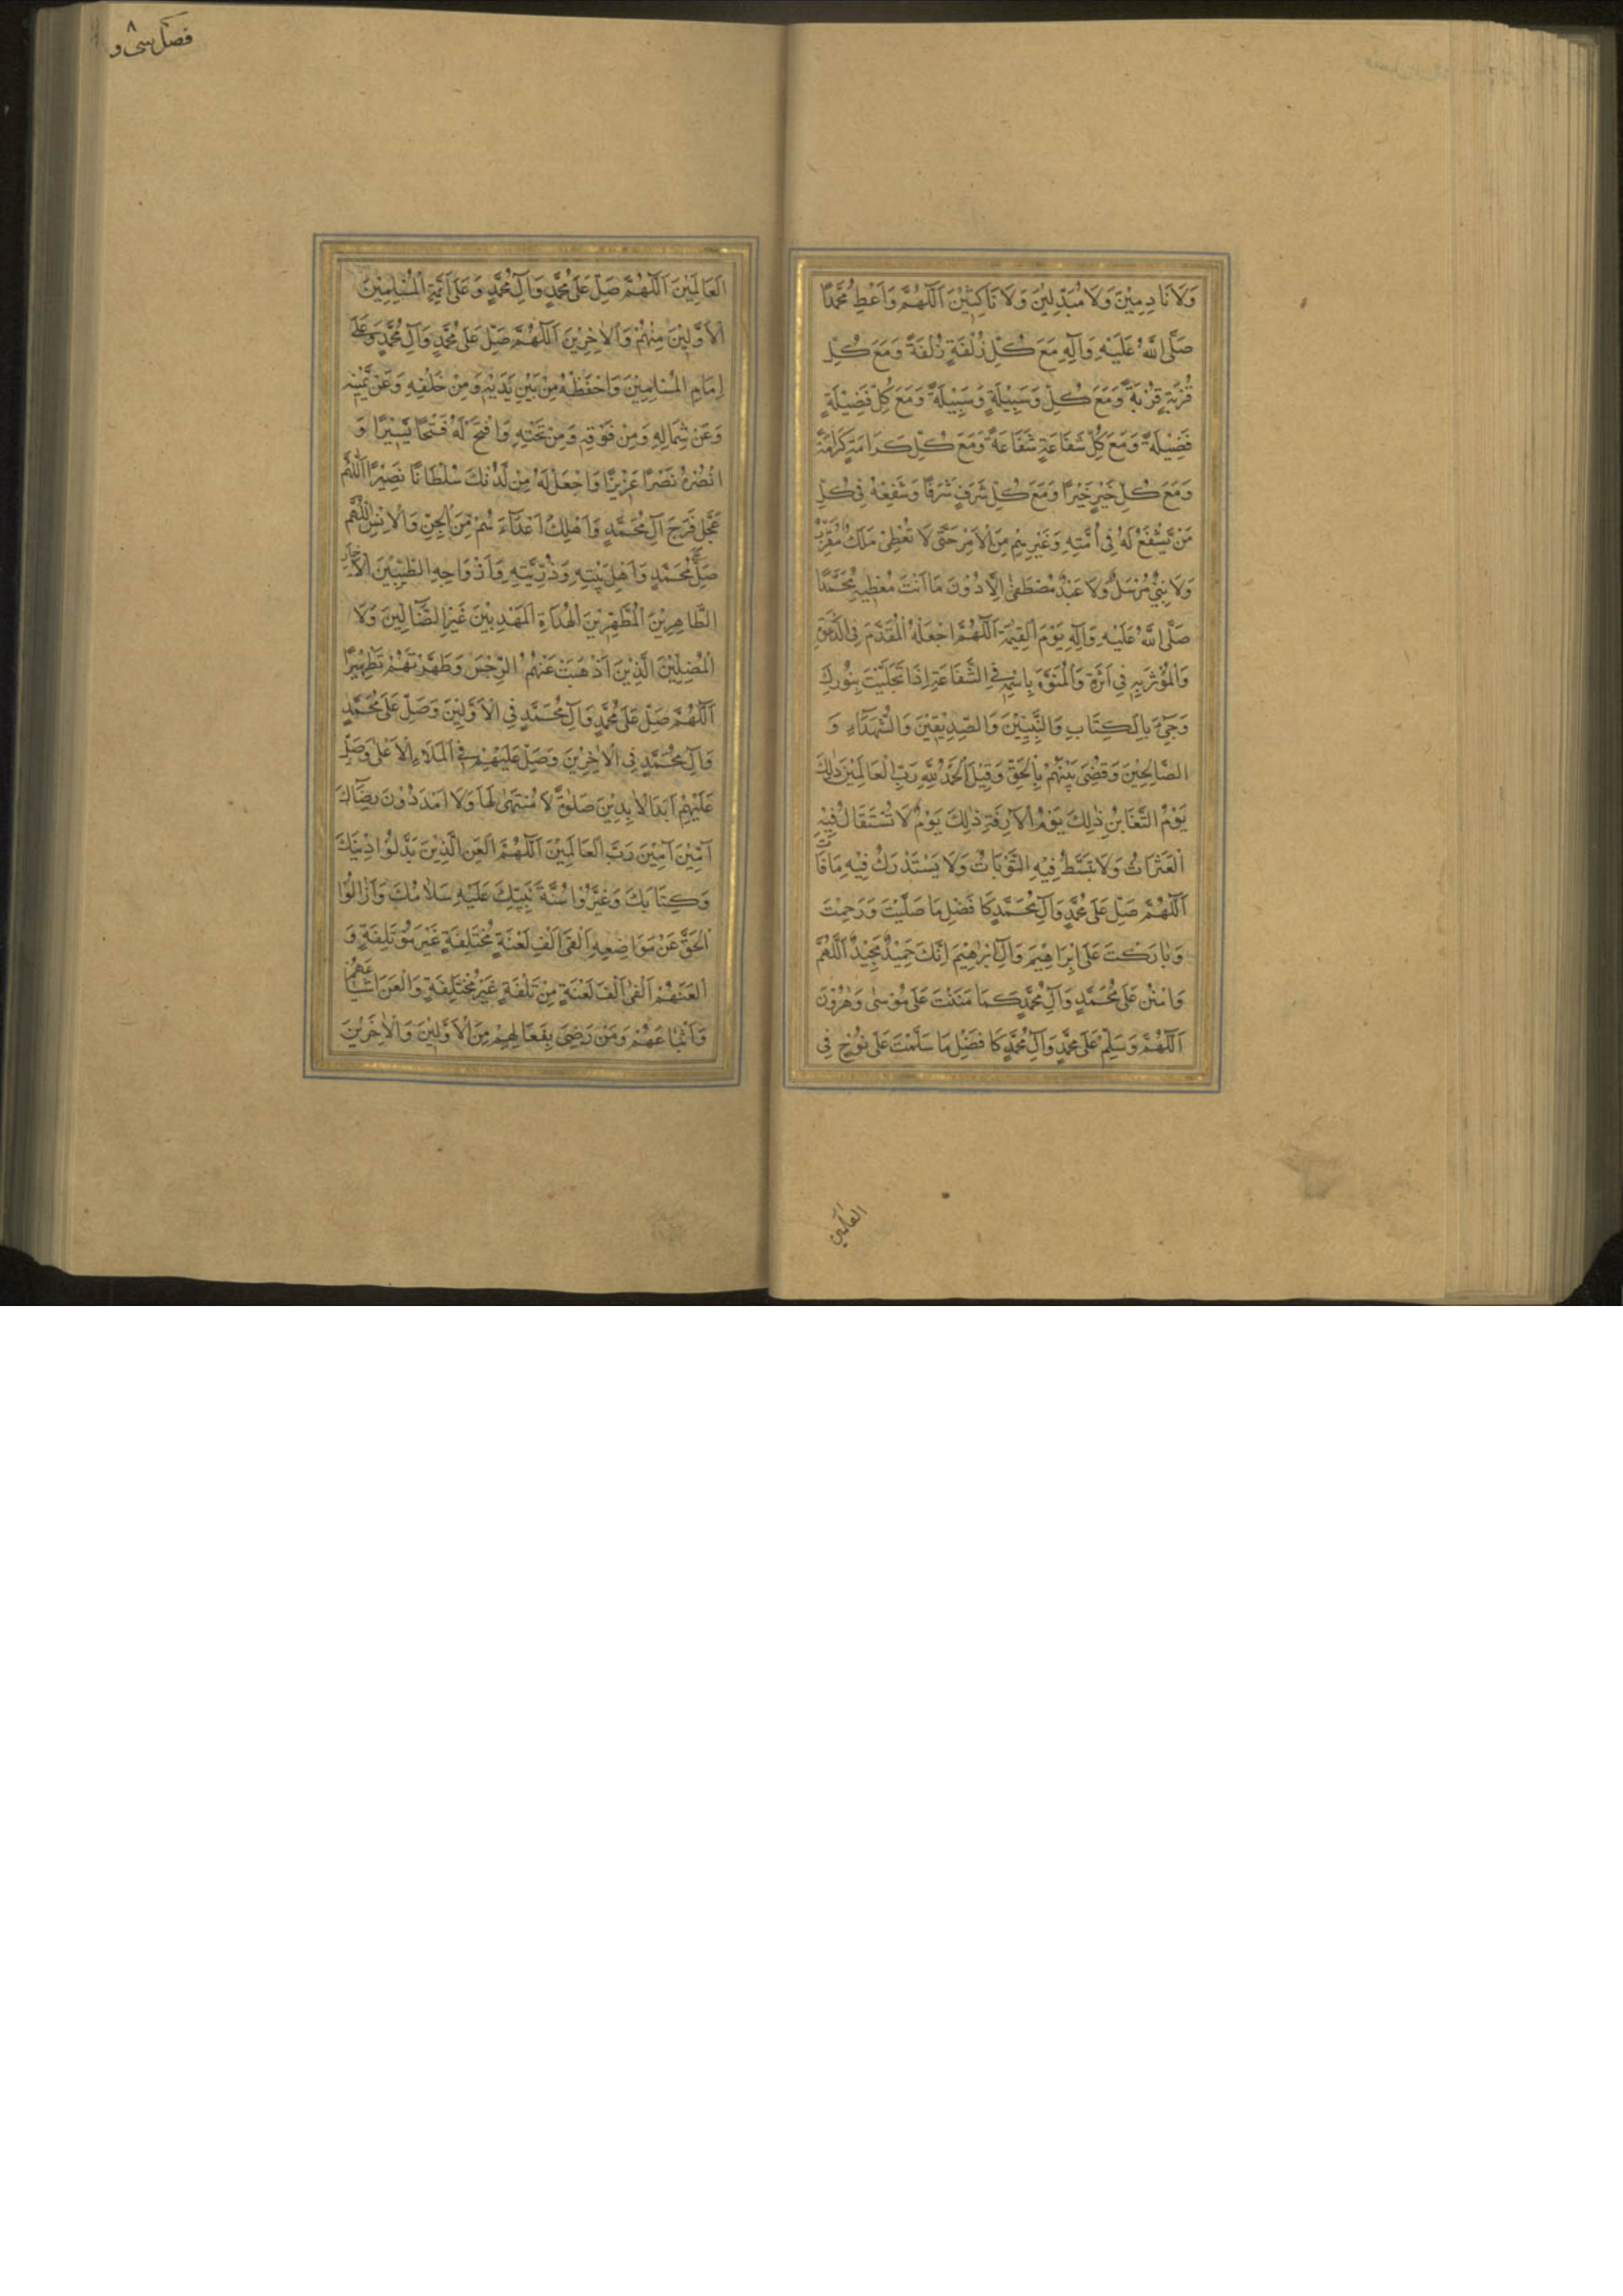 وَلَا نَادِمِيْنَ وَلَا مُبَدِّلِيْنَ وَلَا نَاكِثِيْنَ اَللّٰهُمَّ وَاَعْطِ مُحَمَّدًا
صَلَّى اللّٰهُ عَلَيْهِ وَآلِهِ مَعَ كُلِّ زُلْفَةٍ زُلْفَةً وَمَعَ كُلِّ
قُرْبَةٍ قُرْبَةً وَمَعَ كُلِّ وَسَبِيْلَةٍ وَسَبِيْلَةً وَمَعَ كُلِّ فَضِيْلَةٍ
فَضِيْلَةً وَمَعَ كُلِّ شَفَاعَةٍ شَفَاعَةً وَمَعَ كُلِّ كَرَامَةٍ كَرَامَةً
وَمَعَ كُلِّ خَيْرٍ خَيْرًا وَمَعَ كُلِّ شَرَفٍ شَرَفًا وَشَفِّعْهُ فِي كُلِّ
مَنْ يَشْفَعُ لَهُ فِي اُمَّتِهِ وَغَيْرِهِمْ مِنَ الْاُمَمِ حَتّٰى لَا تُعْطِيْ مَلَكٌ مُقَرَّبٌ
وَلَا نَبِيٌّ مُرْسَلٌ وَلَا عَبْدٌ مُصْطَفٰى اِلَّا دُوْنَ مَا اَنْتَ مُعْطِيْهِ مُحَمَّدًا
صَلَّى اللّٰهُ عَلَيْهِ وَآلِهِ يَوْمَ الْقِيٰمَةِ اَللّٰهُمَّ اجْعَلْهُ الْمُقَدَّمَ فِي الدَّعْوَةِ
وَالْمُؤْثَرَ بِهِ فِي الْاَثَرَةِ وَالْمُنَوَّهَ بِاسْمِهِ فِي الشَّفَاعَةِ اِذَا تَجَلَّيْتَ بِنُوْرِكَ
وَجِيْءَ بِالْكِتَابِ وَالنَّبِيِّيْنَ وَالصِّدِّيْقِيْنَ وَالشُّهَدَآءِ وَ
الصَّالِحِيْنَ وَقُضِيَ بَيْنَهُمْ بِالْحَقِّ وَقِيْلَ الْحَمْدُ لِلّٰهِ رَبِّ الْعَالَمِيْنَ ذٰلِكَ
يَوْمُ التَّغَابُنِ ذٰلِكَ يَوْمُ الْآزِفَةِ ذٰلِكَ يَوْمٌ لَا تُسْتَقَالُ فِيْهِ
الْعَثَرَاتُ وَلَا تُبْسَطُ فِيْهِ التَّوْبَاتُ وَلَا يُسْتَدْرَكُ فِيْهِ مَا فَاتَ
اَللّٰهُمَّ صَلِّ عَلٰى مُحَمَّدٍ وَآلِ مُحَمَّدٍ كَا فْضَلِ مَا صَلَّيْتَ وَرَحِمْتَ
وَبَارَكْتَ عَلٰى اِبْرَاهِيْمَ وَآلِ اِبْرٰهِيْمَ اِنَّكَ حَمِيْدٌ مَجِيْدٌ اَللّٰهُمَّ
وَامْنُنْ عَلٰى مُحَمَّدٍ وَآلِ مُحَمَّدٍ كَمَا مَنَنْتَ عَلٰى مُوْسٰى وَهٰرُوْنَ
اَللّٰهُمَّ وَسَلِّمْ عَلٰى مُحَمَّدٍ وَآلِ مُحَمَّدٍ كَا فْضَلِ مَا سَلَّمْتَ عَلٰى نُوْحٍ فِي
العالمين
فصل سی و ٨
الْعَالَمِيْنَ اَللّٰهُمَّ صَلِّ عَلٰى مُحَمَّدٍ وَآلِ مُحَمَّدٍ وَعَلٰى اَئِمَّةِ الْمُسْلِمِيْنَ
الْاَوَّلِيْنَ مِنْهُمْ وَالْاٰخِرِيْنَ اَللّٰهُمَّ صَلِّ عَلٰى مُحَمَّدٍ وَآلِ مُحَمَّدٍ وَعَلٰى
اِمَامِ الْمُسْلِمِيْنَ وَاحْفَظْهُ مِنْ بَيْنِ يَدَيْهِ وَمِنْ خَلْفِهِ وَعَنْ يَمِيْنِهِ
وَعَنْ شِمَالِهِ وَمِنْ فَوْقِهِ وَمِنْ تَحْتِهِ وَافْتَحْ لَهُ فَتْحًا يَسِيْرًا وَ
انْصُرْهُ نَصْرًا عَزِيْزًا وَاجْعَلْ لَهُ مِنْ لَدُنْكَ سُلْطَانًا نَصِيْرًا اَللّٰهُمَّ
عَجِّلْ فَرَجَ آلِ مُحَمَّدٍ وَاَهْلِكْ اَعْدَآءَهُمْ مِنَ الْجِنِّ وَالْاِنْسِ اَللّٰهُمَّ
صَلِّ عَلٰى مُحَمَّدٍ وَاَهْلِ بَيْتِهِ وَذُرِّيَّتِهِ وَاَزْوَاجِهِ الطَّيِّبِيْنَ الْاَخْيَارِ
الطَّاهِرِيْنَ الْمُطَهَّرِيْنَ الْهُدَاةِ الْمَهْدِيِّيْنَ غَيْرِ الضَّآلِّيْنَ وَلَا
الْمُضِلِّيْنَ الَّذِيْنَ اَذْهَبْتَ عَنْهُمُ الرِّجْسَ وَطَهَّرْتَهُمْ تَطْهِيْرًا
اَللّٰهُمَّ صَلِّ عَلٰى مُحَمَّدٍ وَآلِ مُحَمَّدٍ فِي الْاَوَّلِيْنَ وَصَلِّ عَلٰى مُحَمَّدٍ
وَآلِ مُحَمَّدٍ فِي الْاٰخِرِيْنَ وَصَلِّ عَلَيْهِمْ فِي الْمَلَاءِ الْاَعْلٰى وَصَلِّ
عَلَيْهِمْ اَبَدَ الْاٰبِدِيْنَ صَلٰوةً لَا مُنْتَهٰى لَهَا وَلَا اَمَدَ دُوْنَ رِضَاكَ
آمِيْنَ آمِيْنَ رَبَّ الْعَالَمِيْنَ اَللّٰهُمَّ الْعَنِ الَّذِيْنَ بَدَّلُوْا دِيْنَكَ
وَكِتَابَكَ وَغَيَّرُوْا سُنَّةَ نَبِيِّكَ عَلَيْهِ سَلَامُكَ وَاَزَالُوا
الْحَقَّ عَنْ مَوَاضِعِهِ اَلْفَيْ اَلْفِ لَعْنَةٍ مُخْتَلِفَةٍ غَيْرَ مُؤْتَلِفَةٍ وَ
الْعَنْهُمْ اَلْفَيْ اَلْفِ لَعْنَةٍ مُؤْتَلِفَةٍ غَيْرَ مُخْتَلِفَةٍ وَالْعَنْ اَشْيَاعَهُمْ
وَاَتْبَاعَهُمْ وَمَنْ رَضِيَ بِفِعَالِهِمْ مِنَ الْاَوَّلِيْنَ وَالْاٰخِرِيْنَ